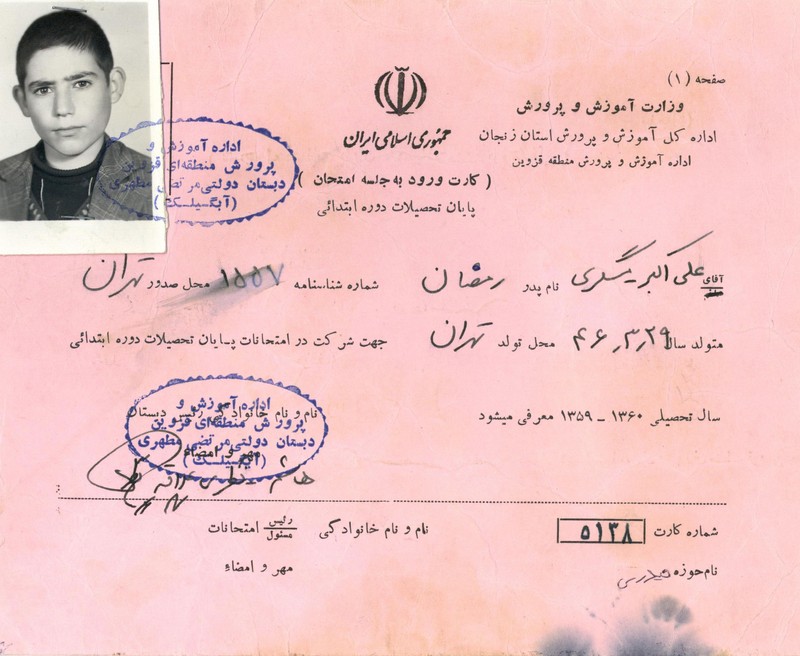 صفحه (۱)
وزارت آموزش و پرورش
اداره کل آموزش و پرورش استان زنجان
اداره آموزش و پرورش منطقه قزوین
جمهوری اسلامی ایران
( کارت ورود به جلسه امتحان )
پایان تحصیلات دوره ابتدائی
اداره آموزش و
پرورش منطقه‌ای قزوین
دبستان دولتی مرتضی مطهری
(آبگسیلسک)
آقای علی اکبر عسگری نام پدر رمضان شماره شناسنامه ۱۵۵۷ محل صدور تهران
متولد سال ۴۶٫۳٫۲۹ محل تولد تهران جهت شرکت در امتحانات پایان تحصیلات دوره ابتدائی
سال تحصیلی ۱۳۶۰ ــ ۱۳۵۹ معرفی میشود
نام و نام خانوادگی رئیس دبستان
مهر و امضاء
اداره آموزش و
پرورش منطقه‌ای قزوین
دبستان دولتی مرتضی مطهری
(آبگسیلسک)
شماره کارت ۵۱۳۸ نام و نام خانوادگی رئیس مسئول امتحانات
نام حوزه مهر و امضاء